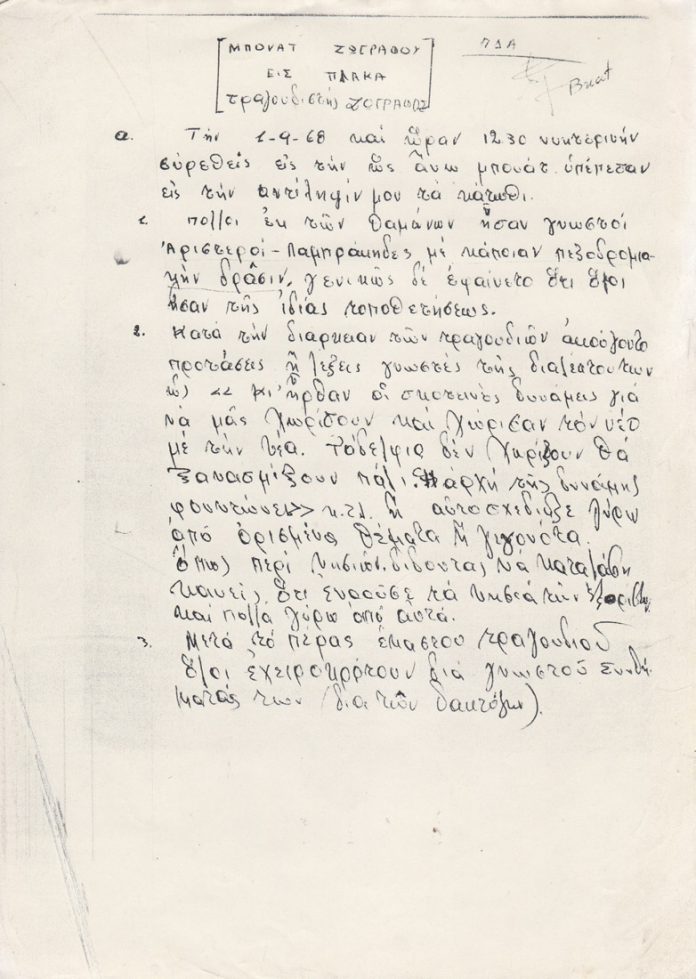 ΜΠΟΥΑΤ ΖΩΓΡΑΦΟΥ
ΕΙΣ ΠΛΑΚΑ
τραγουδιστής ΖΩΓΡΑΦΟΣ
Βυατ
α. Την 1-9-68 και ὥραν 1230 νυκτερινήν
εὑρεθείς εἰς τήν ὡς ἄνω μπουάτ ὑπέπεσαν
εἰς τήν ἀντίληψίν μου τά κάτωθι.
1. Πολλοί ἐκ τῶν θαμώνων ἦσαν γνωστοί
Ἀριστεροί - Λαμπράκηδες μέ κάποιαν πεζοδρομια-
κήν δρᾶσιν, γενικῶς δέ ἐφαίνετο ὅτι ὅλοι
ἦσαν τῆς ἰδίας τοποθετήσεως.
2. Κατά τήν διάρκειαν τῶν τραγουδιῶν ἀκούγοντο
προτάσεις ἤ λέξεις γνωστές τῆς διαλέκτου των
ὡς << κι' ἦρθαν οἱ σκοτεινές δυνάμεις γιά
νά μᾶς χωρίσουν καί χώρισαν τόν νέο
μέ τήν νέα. Τἀδέλφια δέν χωρίζουν θά
ξανασμίξουν πάλι. Ἡ ἀρχή τῆς δυνάμης
φουντώνει>> κ.τ.λ. ἤ αὐτοσχεδίαζε γύρω
ἀπό ὁρισμένα θέματα ἤ γεγονότα.
Ὅπως περί νησιών. δίδοντας νά καταλάβη
κανείς, ὅτι ἐννοοῦσε τά νησιά τῶν ἐξορίστων
καί πολλά γύρω ἀπό αὐτά.
3. Μετά τό πέρας ἑκάστου τραγουδιοῦ
ὅλοι ἐχειροκρότουν διά γνωστοῦ συνθή-
ματός των (διά τῶν δακτύλων).